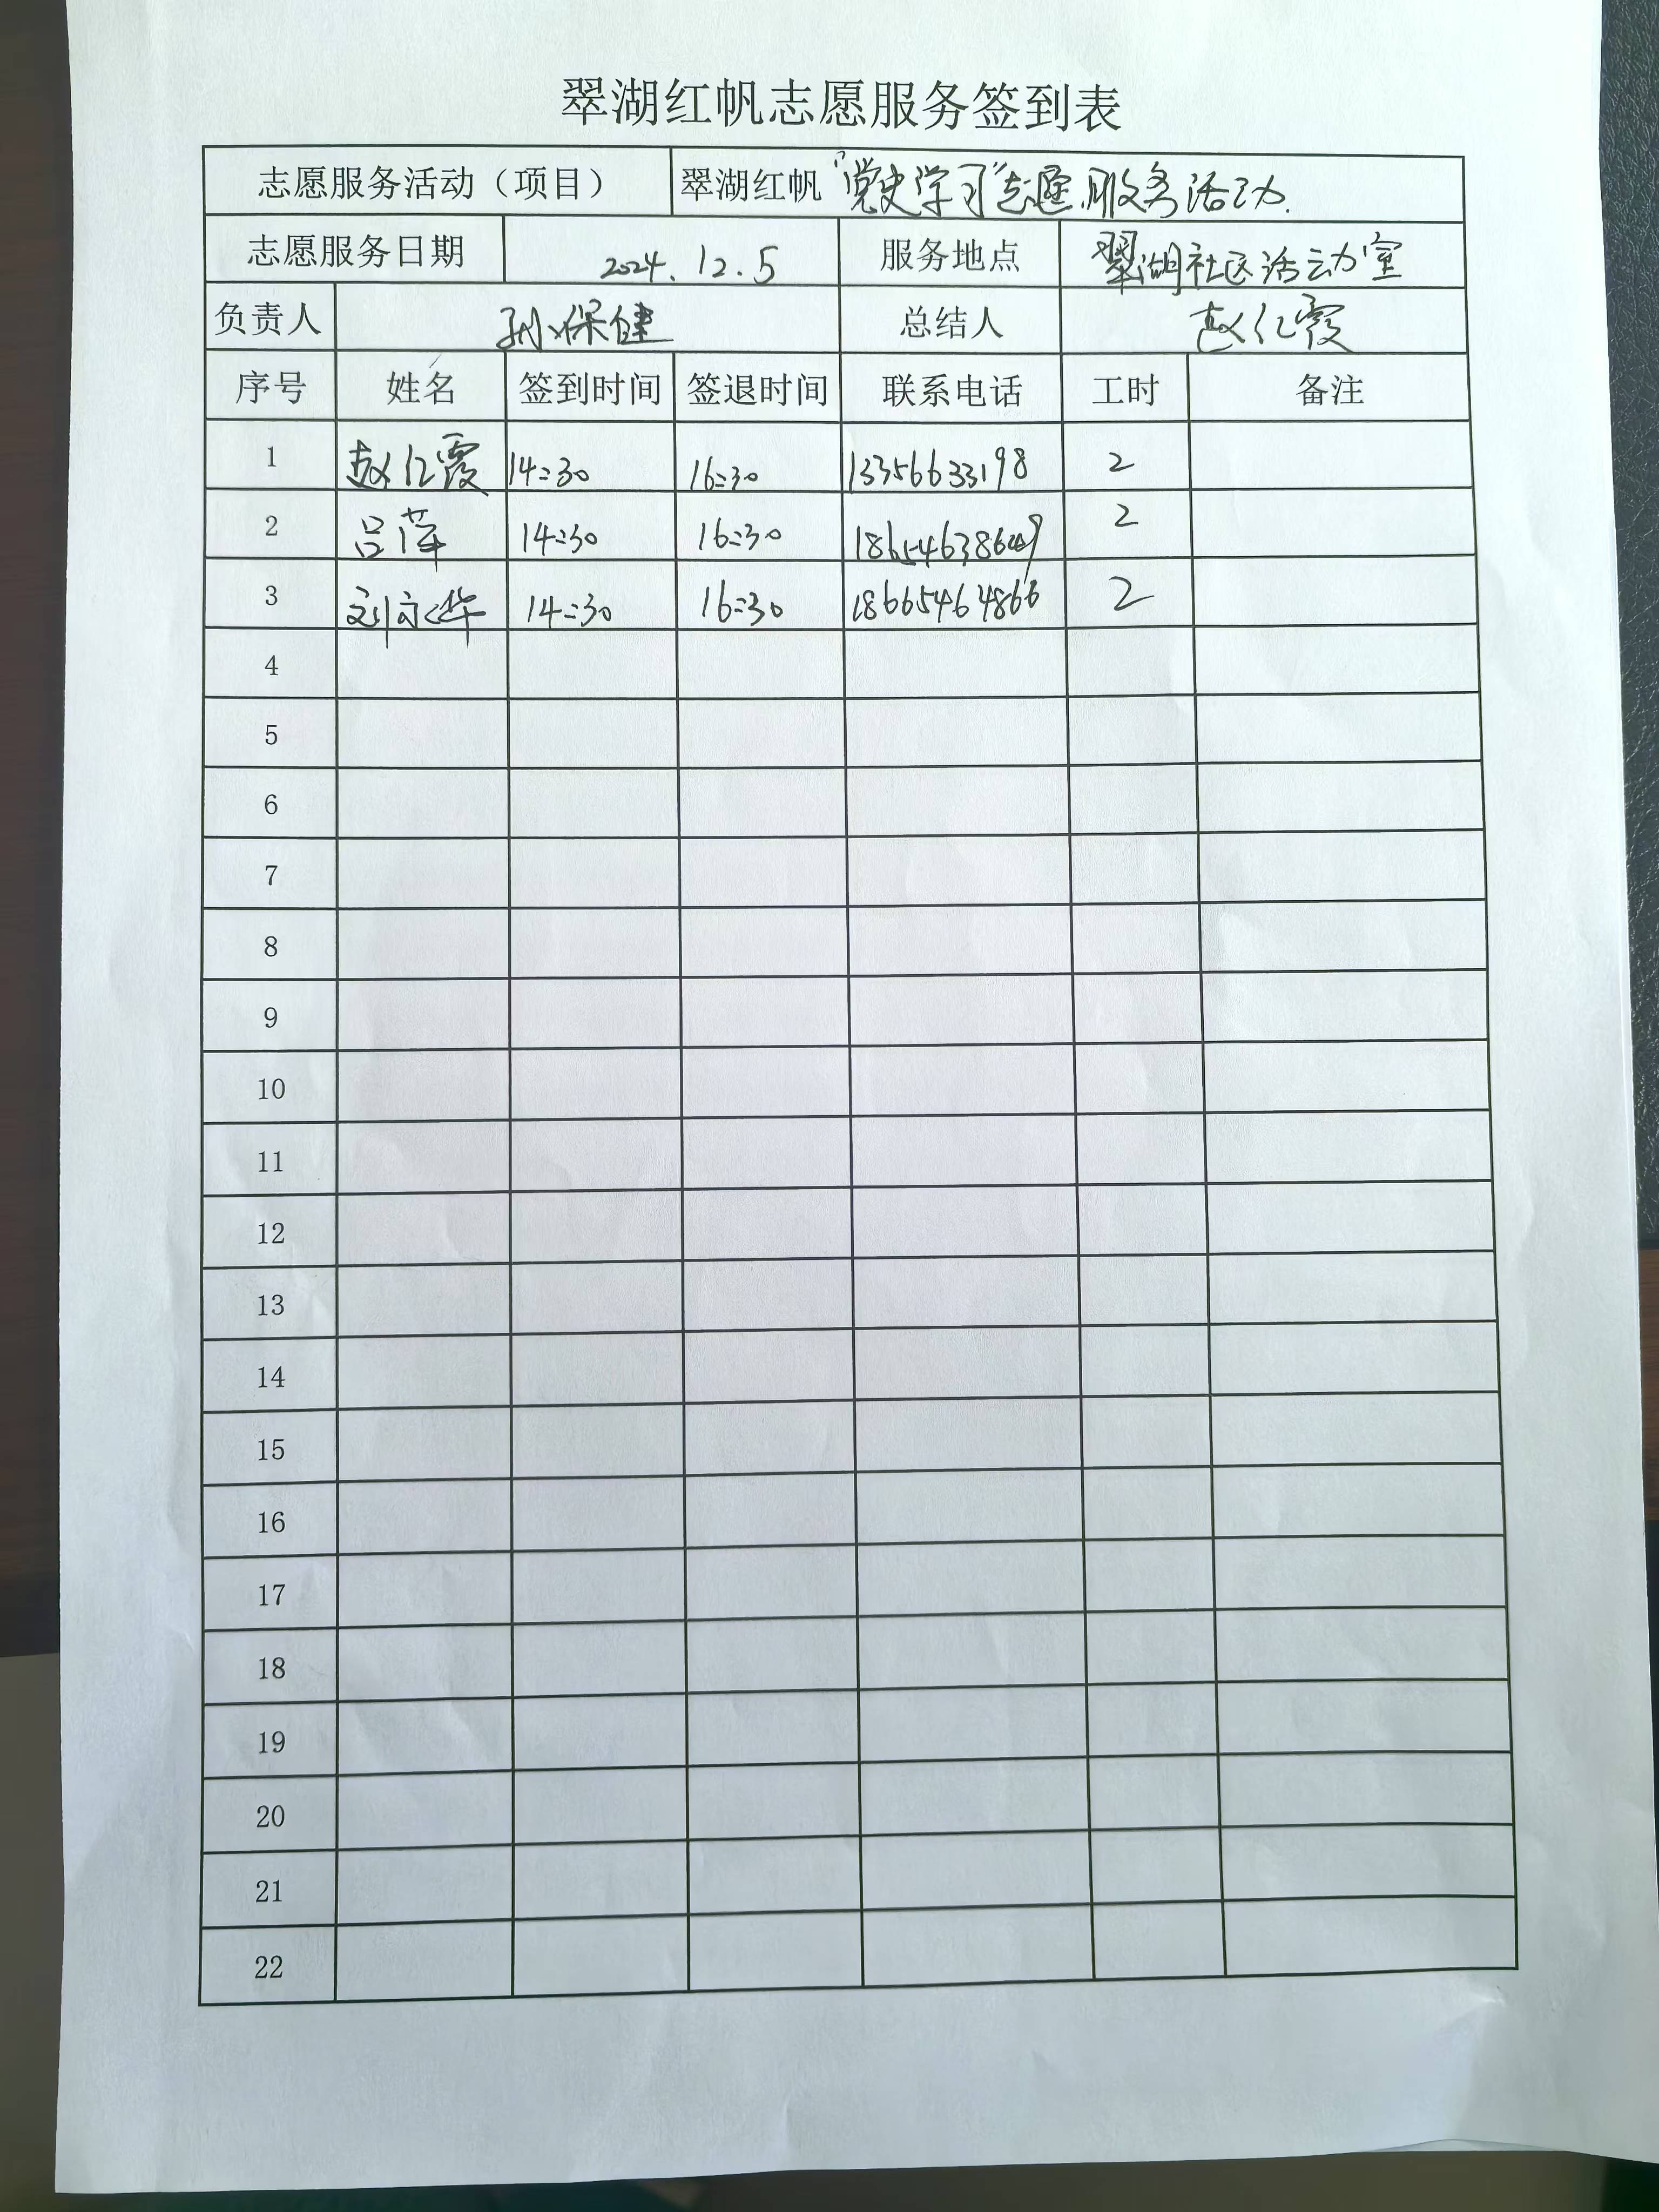 翠湖红帆志愿服务签到表
志愿服务活动（项目） 翠湖红帆“党史学习”志愿服务活动.
志愿服务日期 2024.12.5 服务地点 翠湖社区活动室
负责人 孙保健 总结人 赵仁霞
序号 姓名 签到时间 签退时间 联系电话 工时 备注
1 赵仁霞 14:30 16:30 13356633198 2
2 吕萍 14:30 16:30 2
3 刘永华 14:30 16:30 18665464866 2
4
5
6
7
8
9
10
11
12
13
14
15
16
17
18
19
20
21
22